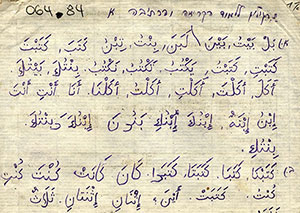 064.84
למוד בקריאה ובכתיבה א
א) بَلْ بَيْتُ، بَيْنَ لَبَنَ، بِنْتُ، تِبْنُ كَتَبَ، كَتَبْتَ
كَتَبْتِ، كَتَبْتُ. يَكْتُبُ تَكْتُبُ، نَكْتُبُ. بِنْتُكَ، بَيْتُكَ
أَكَلَ، أَكَلْتَ، أَكَلْتِ، أَكَلْتُ، أَكَلْنَا. أَنَا أَنْتَ أَنْتِ
إِبْنُ إِبْنَةُ، إِبْنُكَ إِبْنُكِ بَنُونَ إِبْنُكَ وَبِنْتُكَ.
بِنْتُكِ.
ב) كَتَبْنَا، كَتَبَا، كَتَبَتَا، كَتَبُوا. كَانَ كَانَتْ كُنْتَ كُنْتِ
كُنْتُ. كَتَبَتْ. أَيْنَ، إِثْنَانِ إِثْنَتَانِ، ثَلَاثٌ